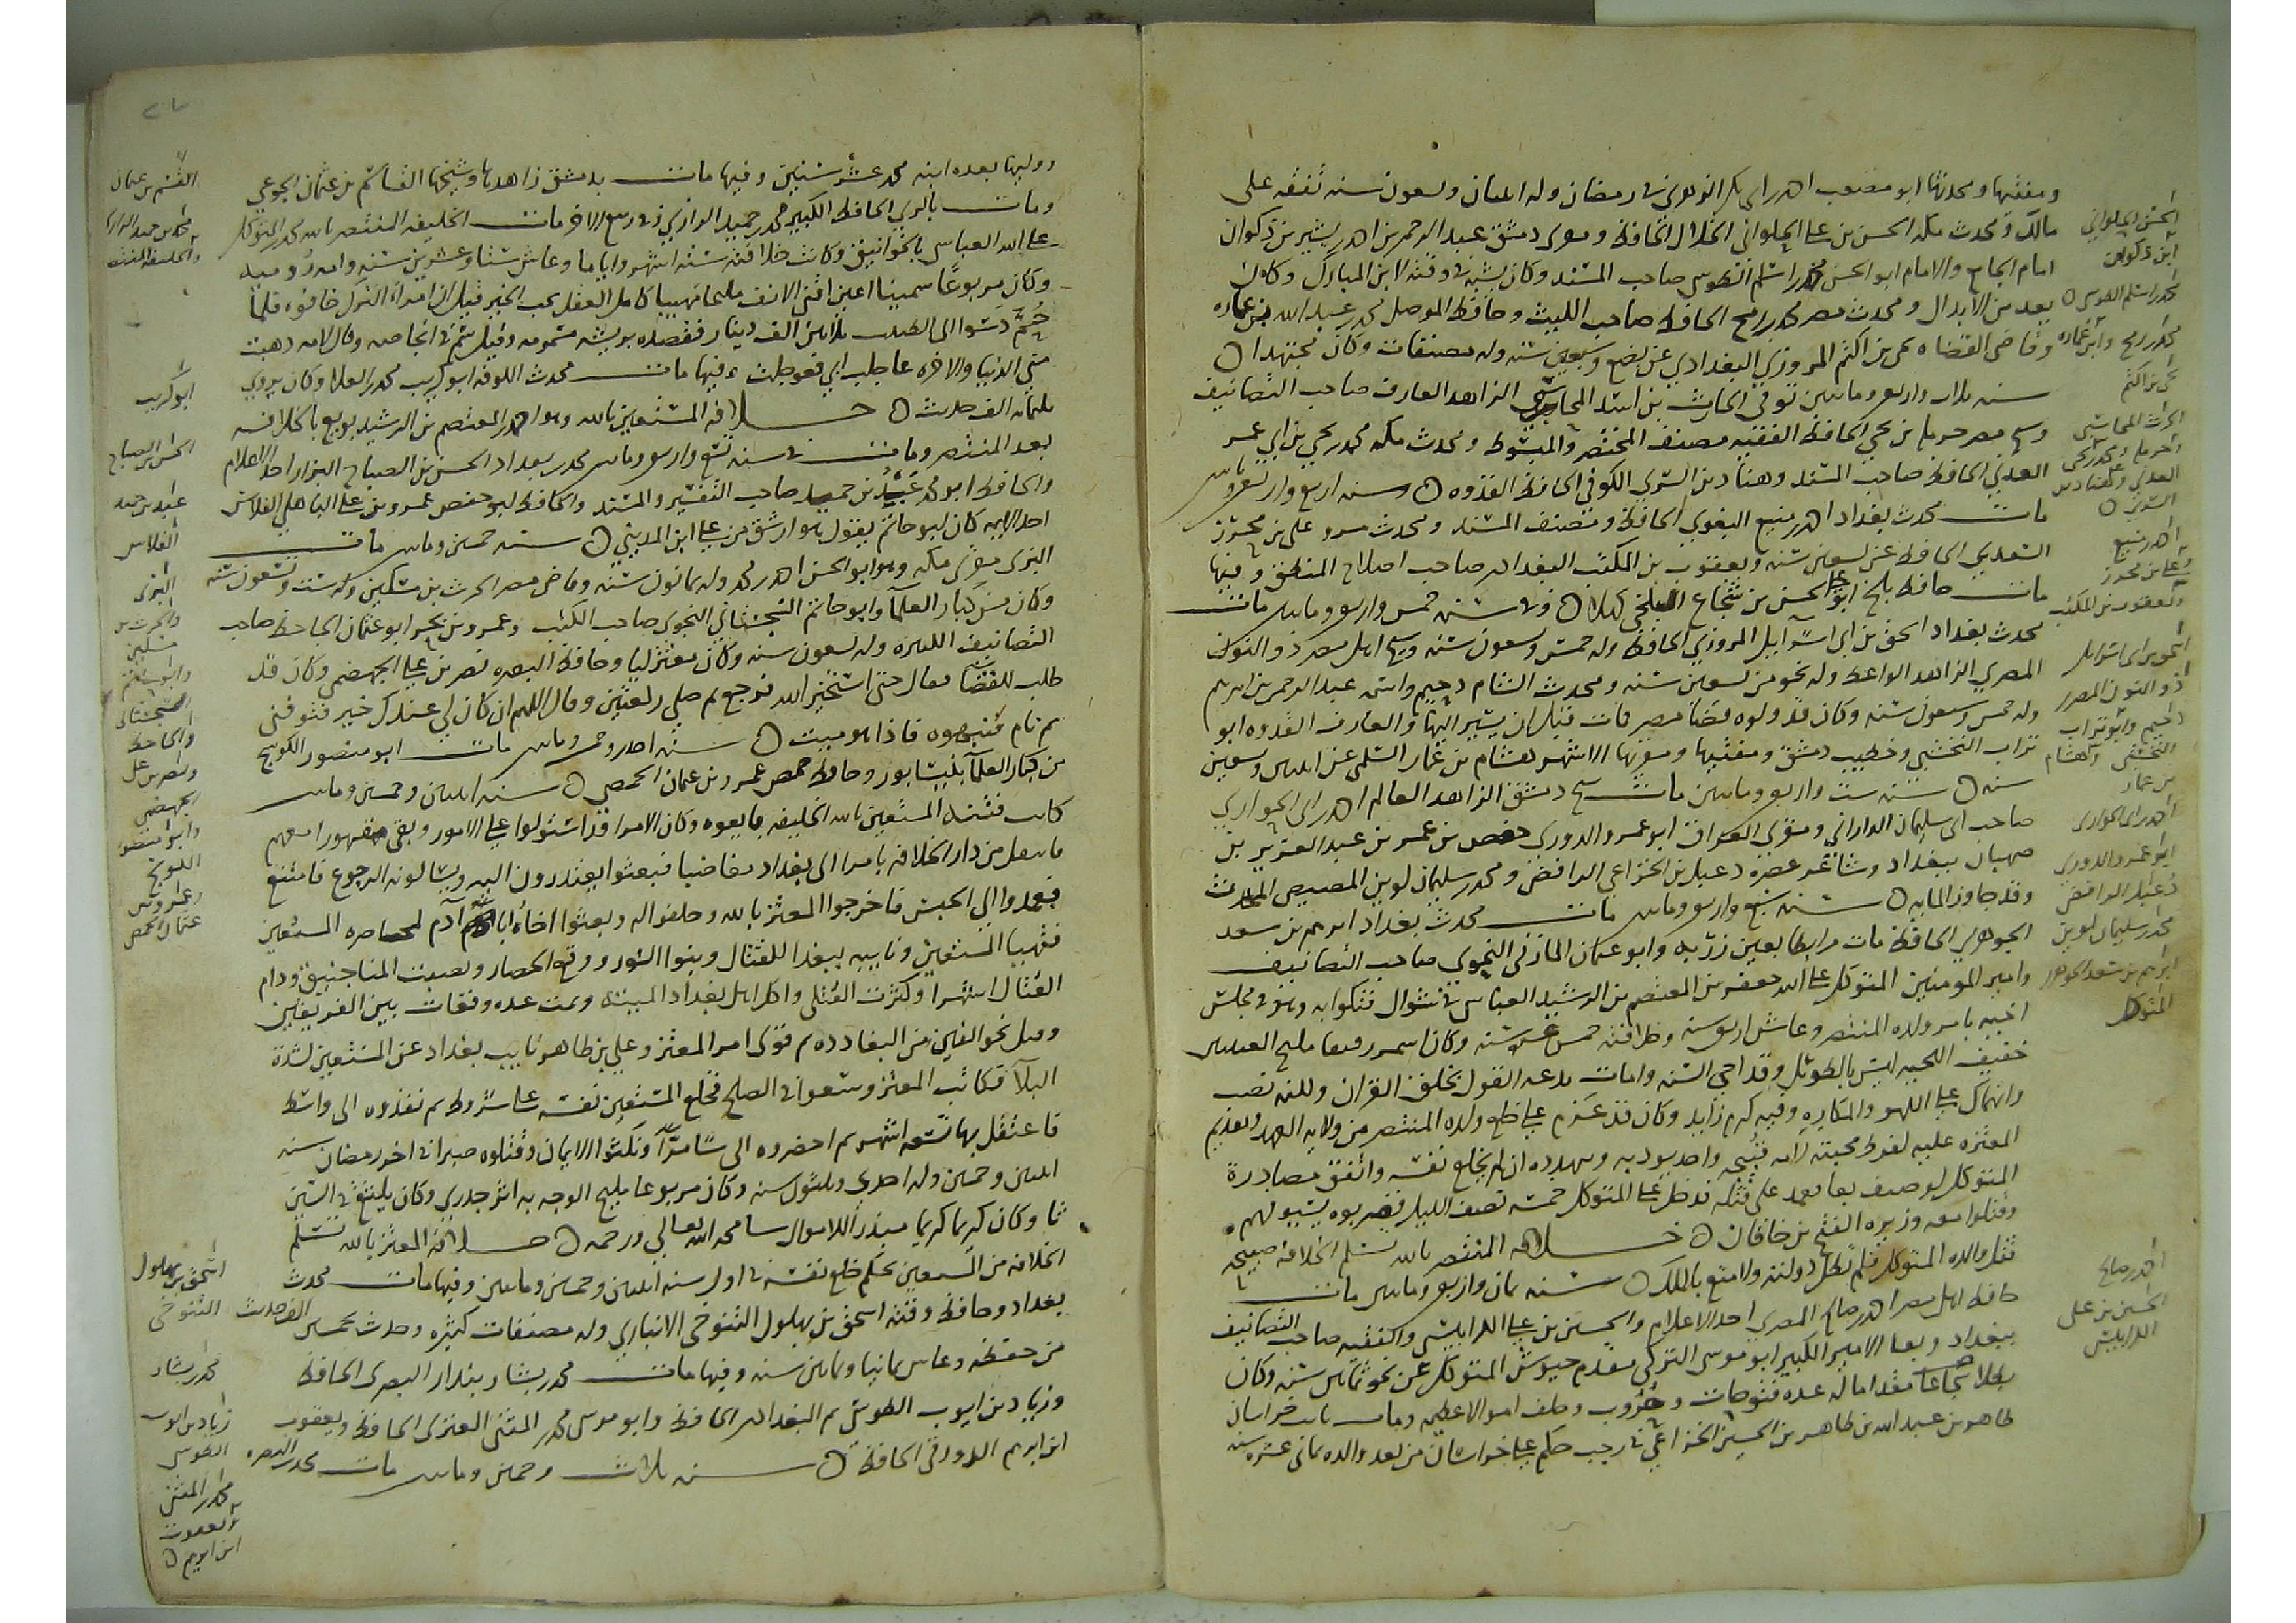 ومفتيها ومحدثها ابو مصعب احمد بن ابي بكر الزهري في رمضان وله اثنان وتسعون سنه تفقه على
مالك ومحدث مكه الحسن بن علي الحلواني الخلال الحافظ ومقرى دمشق عبد الله بن احمد بن بشير بن ذكوان
امام الجامع والامام ابو الحسن محمد بن اسلم الطوسي صاحب المسند وكان يشبه في وقته لابن المبارك وكان
يعد من الابدال ومحدث مصر محمد بن رمح الحافظ صاحب الليث وحافظ الموصل محمد بن عبد الله بن عماره
وقاضي القضاه يحيى بن اكثم المروزي البغدادي عن بضع وسبعين سنه وله مصنفات وكان مجتهدا
سنه ثلاث واربعين ومايتين توفي الحارث بن اسد المحاسبي الزاهد العارف صاحب التصانيف
وشيخ مصر حرمله بن يحيى الحافظ الفقيه مصنف المختصر والمبسوط ومحدث مكه محمد بن يحيى بن ابي عمر
العدني الحافظ صاحب المسند وهناد بن السري الكوفي الحافظ القدوه وسنه اربع واربعين ومايتين
مات محدث بغداد احمد بن منيع البغوي الحافظ ومصنف المسند ومحدث مرو علي بن حجر
السعدي الحافظ عن تسعين سنه ويعقوب بن السكيت البغدادي صاحب اصلاح المنطق وفيها
مات حافظ بلخ ابو علي الحسن بن شجاع البلخي كهلا وفي سنه خمس واربعين ومايتين مات
محدث بغداد اسحق بن ابي اسرآييل المروزي الحافظ وله خمس وتسعون سنه وشيخ اهل مصر ذو النون
المصري الزاهد الواعظ وله نحو من تسعين سنه ومحدث الشام دحيم واسمه عبد الرحمن بن ابرهيم
وله خمس وسبعون سنه وكان قد ولوه قضا مصر فمات قبل ان يسير اليها والعارف القدوه ابو
تراب النخشبي وخطيب دمشق ومفتيها ومقريها الاشهر هشام بن عمار السلمي عن اثنين وتسعين
سنه سنه ست واربعين ومايتين مات شيخ دمشق الزاهد العالم احمد بن ابي الحواري
صاحب ابي سليمان الداراني ومقرى العراق ابو عمر والدوري حفص بن عمر بن عبد العزيز بن
صهبان ببغداد وشاعر عصره دعبل بن الخزاعي الرافضي ومحمد بن سليمان لوين المصيصي المحدث
وقد جاوز المايه سنه سبع واربعين ومايتين مات محدث بغداد ابرهيم بن سعد
الجوهري الحافظ مات مرابطا بعين زربه وابو عثمان المازني النحوي صاحب التصانيف
وامير المومنين المتوكل على الله جعفر بن المعتصم بن الرشيد العباسي في شوال فتكوا به وهو في مجلس
انسه بامر ولده المنتصر وعاش اربعين سنه وخلافته خمس عشره سنه وكان اسمر رقيقا مليح العينين
خفيف اللحيه ليس بالطويل وقد احيى السنه وامات بدعه القول بخلق القران ولكنه نصب
وانهماك على اللهو والمكاره وفيه كرم زايد وكان قد عزم على خلع ولده المنتصر من ولايه العهد وتقديم
المعتز عليه لفرط محبته لامه قبيحه واخذ يوذيه ويتهدده ان لم يخلع نفسه واتفق مصادرة
المتوكل لوصيف وبغا فعمد على قتله فدخل على المتوكل خمسه نصف الليل فضربوه بسيوفهم
وقتلوا معه وزيره الفتح بن خاقان خلافه المنتصر بالله تسلم الخلافه صبيحه
قتل والده المتوكل فلم تطل دولته ولا امتع بالملك سنه ثمان واربعين ومايتين مات
حافظ اهل مصر احمد بن صالح المصري احد الاعلام والحسين بن علي الكرابيسي والفقيه صاحب التصانيف
ببغداد وبغا الامير الكبير ابو موسى التركي مقدم جيوش المتوكل عن نحو ثمانين سنه وكان
بطلا شجاعا مقداما له عده فتوحات وحروب وخلف اموالا عظيمه ومات نايب خراسان
طاهر بن عبد الله بن طاهر بن الحسين الخزاعي في رجب حكم على خراسان من بعد والده ثماني عشره سنه
الحسن الحلواني
ابن ذكوان
محمد بن اسلم الطوسي
محمد بن رمح وابن عماره
يحيى بن اكثم
الحرث المحاسبي
وحرمله ومحمد بن يحيى
العدني وهناد بن
السري
احمد بن منيع
وعلي بن حجر
ويعقوب بن السكيت
اسحق بن ابي اسرائيل
ذو النون المصري
دحيم وابو تراب
النخشبي وهشام
بن عمار
احمد بن ابي الحواري
ابو عمر والدوري
دعبل الرافضي
محمد بن سليمان لوين
ابرهيم بن سعد الجوهري
المتوكل
احمد بن صالح
الحسين بن علي
الكرابيسي
ووليها بعده ابنه محمد عشر سنين وفيها مات بدمشق زاهدها وشيخها القاسم بن عثمان الجوعي
ومات بالري الحافظ الكبير محمد بن حميد الرازي في ربيع الاخر مات الخليفه المنتصر بالله محمد بن المتوكل
على الله العباسي بالخوانيق وكانت خلافته سته اشهر واياما وعاش ستا وعشرين سنه وامه روميه
وكان مربوعا سمينا اعين اقنى الانف مليحا مهيبا كامل العقل يحب الخير قيل ان امراء الترك خافوه فلما
حُمَّ دسوا الى الطبيب ثلاثين الف دينار ففصده بريشه مسمومه وقيل سم في انجاصه وقال لامه ذهبت
مني الدنيا والاخره عاجلت ابي فعوجلت وفيها مات محدث الكوفه ابو كريب محمد بن العلا وكان يروي
ثلثمائه الف حديث خلافه المستعين بالله وهو احمد بن المعتصم بن الرشيد بويع بالخلافه
بعد المنتصر ومات في سنه تسع واربعين ومايتين محدث بغداد الحسن بن الصباح البزار احد الاعلام
والحافظ ابو محمد عبد بن حميد صاحب التفسير والمسند والحافظ ابو حفص عمرو بن علي الباهلي الفلاس
احد الايمه كان ابو حاتم يقول هو ارشق من علي ابن المديني سنه خمسين ومايتين مات
البزي مقرى مكه وهو ابو الحسن احمد بن محمد وله ثمانون سنه وقاضي مصر الحرث بن مسكين وله ست وتسعون سنه
وكان من كبار العلمآ وابو حاتم السجستاني النحوي صاحب الكتب وعمرو بن بحر ابو عثمان الجاحظ صاحب
التصانيف الكثيره وله تسعون سنه وكان معتزليا وحافظ البصره نصر بن علي الجهضمي وكان قد
طلب للقضا فقال حتى استخير الله فرجع ثم صلى ركعتين وقال اللهم ان كان لي عندك خير فتوفني
ثم نام فنبهوه فاذا هو ميت سنه احدى وخمسين ومايتين مات ابو منصور الكوسج
من كبار العلمآ بنيسابور وحافظ حمص عمرو بن عثمان الحمصي سنه اثنين وخمسين ومايتين
كانت فتنه المستعين بالله الخليفه بايعوه وكان الامرا قد استولوا على الامور وبقي مقهورا معهم
فانتقل من دار الخلافه بسامرا الى بغداد مغاضبا فبعثوا يعتذرون اليه ويسالونه الرجوع فامتنع
فعمدوا الى الحبس فاخرجوا المعتز بالله وحلفوا له وبعثوا اخاه ابا احمد لمحاصره المستعين
فتهيا المستعين ونايبه ببغداد للقتال وبنوا السور ووقع الحصار ونصبت المناجنيق ودام
القتال اشهرا وكثرت القتلى واكل اهل بغداد الميته وتمت عده وقعات بين الفريقين
وقتل نحو الفين من البغاددة ثم قوى امر المعتز وتخلى بن طاهر نايب بغداد عن المستعين لشدة
البلآ فكاتب المعتز وسعوا في الصلح فخلع المستعين نفسه على شروط ثم نفذوه الى واسط
فاعتقل بها تسعه اشهر ثم احضروه الى سامرّآ ونكثوا الايمان وقتلوه صبرا في اخر رمضان سنه
اثنين وخمسين وله احدى وثلثون سنه وكان مربوعا مليح الوجه به اثر جدري وكان يلثغ في السين
ثا وكان كريما مبذرا للاموال سامحه الله تعالى ورحمه خلافه المعتز بالله تسلم
الخلافه من المستعين بحكم خلع نفسه في اول سنه اثنين وخمسين ومايتين وفيها مات محدث
بغداد وحافظ وقته اسحق بن بهلول التنوخي الانباري وله مصنفات كثيره وحدث بخمسين الف حديث
من حفظه وعاش ثمانيا وثمانين سنه وفيها مات محمد بن بشار بندار البصري الحافظ
وزياد بن ايوب الطوسي ثم البغدادي الحافظ وابو موسى محمد بن المثنى العنزي الحافظ ويعقوب
ابن ابرهيم الدورقي الحافظ سنه ثلاث وخمسين ومايتين مات محدث البصره
القسم بن عثمان
محمد بن حميد الرازي
والخليفه المنتصر
ابو كريب
الحسن بن الصباح
عبد بن حميد
الفلاس
البزي
والحرث بن
مسكين
وابو حاتم
السجستاني
والجاحظ
ونصر بن علي
الجهضمي
وابو منصور
الكوسج
وعمرو بن
عثمان الحمصي
اسحق بن بهلول
التنوخي
محمد بن بشار
زياد بن ايوب
الطوسي
محمد بن المثنى
ويعقوب
ابن ابرهيم